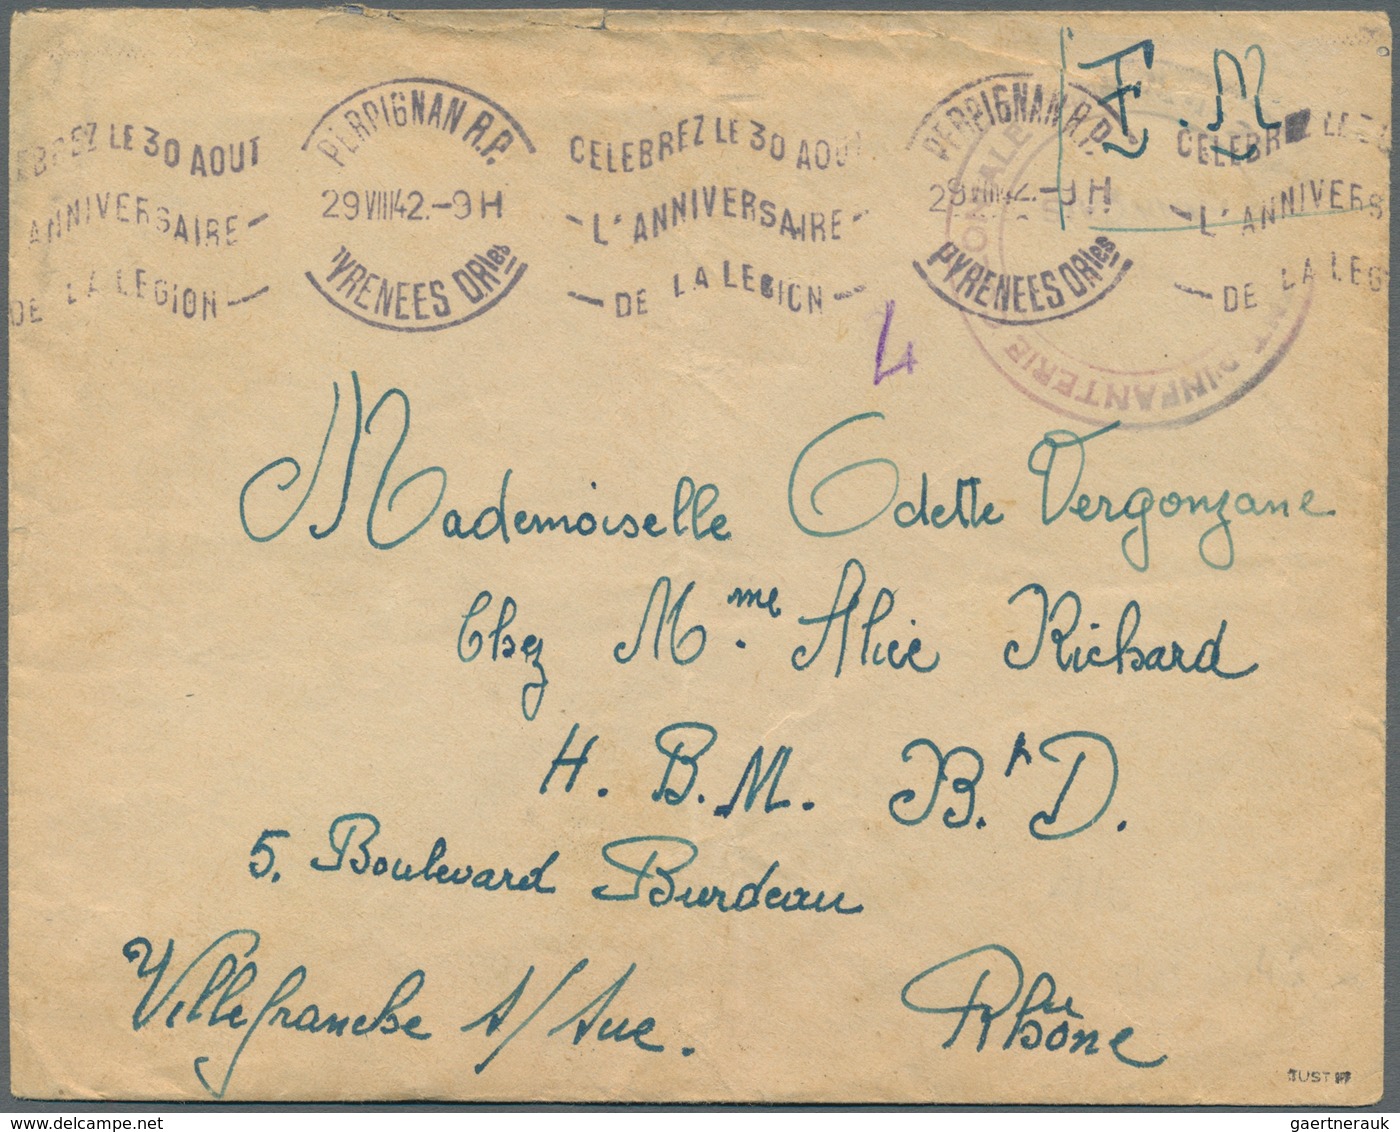 F.M
CELEBREZ LE 30 AOUT
L'ANNIVERSAIRE
DE LA LEGION
PERPIGNAN R.P.
29 VIII 42.-9H
PYRENEES D.Rles
CELEBREZ LE 30 AOUT
L'ANNIVERSAIRE
DE LA LEGION
PERPIGNAN R.P.
29 VIII 42.-9H
PYRENEES D.Rles
CELEBREZ LE
L'ANNIVERS
DE LA LEG
D'INFANTERIE
4
Mademoiselle Odette Vergonzane
Chez Mme Alice Richard
H. B. M. Bt D.
5. Boulevard Burdeau
Villefranche s/ Sue.
Rhône
gaertnerauk